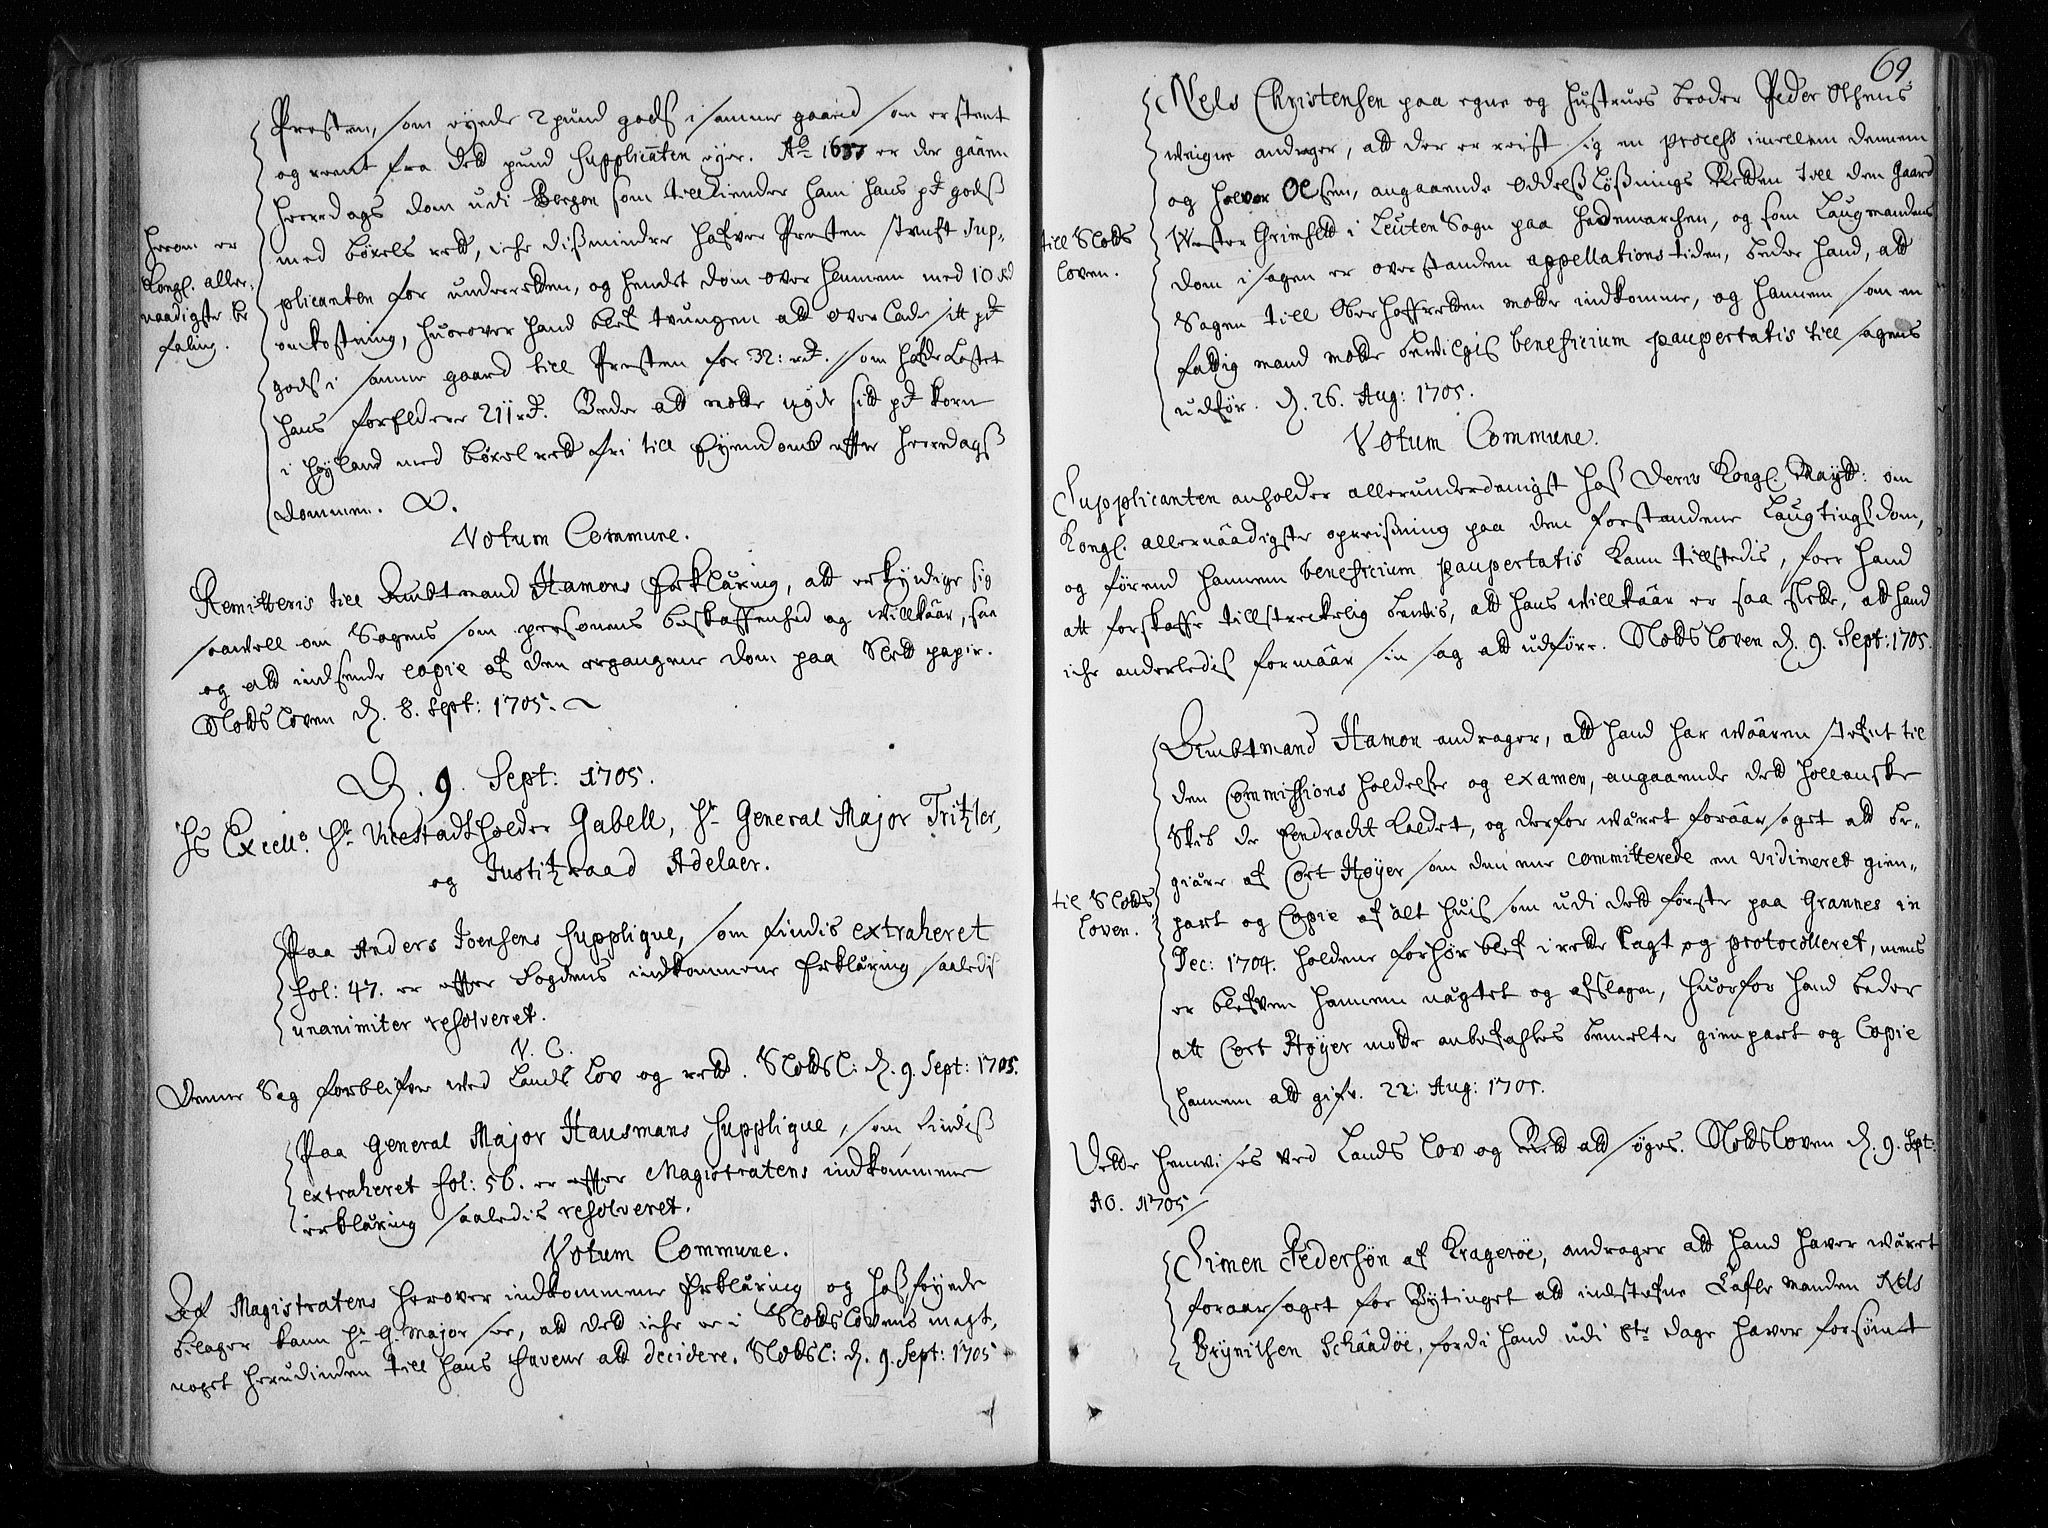 Presten, som eyede 2 pund gods i samme gaard som er skent
og rent fra dett pund Supplicanten eyer. Ao 1637 er der gaaen
herredags dom udi Bergen som tillkiender ham hans pd gods
med böxels rett, iche dissmindre hafver Presten stenft Sup-
plicanten for underretten, og hendet dom over hannem med 10 rd
omkostning, huorover hand blef tvungen att overlade sitt pd
gods i samme gaard till Presten for 32: rd. som hafde kostet
hans forfeldere 211 rd. Beder att motte nyde sitt pd korn
i Höyland med böxel rett fri till Eyendomb effter herredags
dommen.
herom er
Kongl. aller-
naadigste be
faling.
Votum Commune.
Remitteris till Ambtmand Hamons Erkläring, att erkyndige sig
saawell om Sagens som personens beskaffenhed og willkaar, saa
og att indsende copie af den ergangene dom paa Slett papir.
Slotts loven d. 8. Sept: 1705.
D. 9. Sept: 1705.
Hs Excell. Hr Vicestadtholder Gabell, Hr General Major Tritzler,
og Justitzraad Adelaer.
Paa Anders Joensens Supplique, som findis extraheret
fol: 47. er effter Fogdens indkommene Erkläring saaledis
unanimiter resolveret.
V. C.
Denne Sag forblifver wed Lands Lov og rett. Slotts l: d. 9. Sept: 1705.
Paa General Major Hausmans Supplique, som findis
extraheret fol: 56. er effter Magistratens indkommene
erkläring saaledis resolveret.
Votum Commune.
Af Magistratens herover indkommene Erkläring og hossföyede
bilager kann Hr G. Major see, att dett iche er i Slotts lovens magt,
noget herudinden till hans faveur att decidere. Slotts l: d. 9. Sept: 1705
69.
Nels Christensen paa egne og hustrues broder Peder Olsens
weigne andrager, att der er reist sig en process imellem dennem
og Halvor Olsen, angaaende Oddelss Lössnings Retten till dem gaard
Wester Grimset i Leuten Sogn paa Hedemarchen, og som Laugmandens
dom i sagen er overstanden appellations tiden, beder hand, att
Sagen till Ober Hoffretten motte indkomme, og hannem som en
fattig mand motte bewilgis beneficium paupertatis till sagens
udför. d. 26. Aug: 1705.
till Slotts
loven.
Votum Commune.
Supplicanten anholder allerunderdanigst hos Deris Kongl. Maytt: om
Kongl. allernaadigste opreissning paa den forstandene Laugtings dom,
og förend hannem beneficium paupertatis kann tillstedis, foer hand
att forskaffe tillstreckelig bewis, att hans willkaar er saa slette, att hand
iche anderledis formaar sin sag att udföre. Slotts loven d. 9. Sept: 1705.
Ambtmand Hamon andrager, att hand har waaren stefnt til
den Commissions holdelse og examen, angaaende dett hollanske
Skib de Eendracht kaldet, og derfor wäret foraarsaget att be-
giäre af Cort Höyer som den ene committerede en vidimeret gien-
part og Copie af alt huis som udi dett förste paa Grannes in
Dec: 1704. holdene forhör blef i rette lagt og protocolleret, mens
er blefven hannem nägtet og afslagen, huorfor hand beder
att Cort Höyer motte anbefahles bemelte gienpart og Copie
hannem att gifve. 22: Aug: 1705.
til Slotts
loven.
Dette henvises ved Lands Lov og Rett att söges. Slotts loven d. 9. Sept:
AO. 1705
Simen Pedersön af Krageröe, andrager att hand haver wäret
foraarsaget for Bytinget att indstefne Tafle manden Nels
Brynilsen Schaadöe, fordi hand udi 8te dage haver forsömt